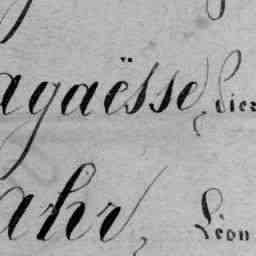 agaësse, dier
ahr, Léon